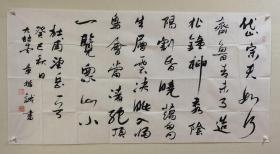 岱宗夫如何
齊魯青未了造
化鍾神秀陰
陽割昏曉蕩胸
生層雲決眦入歸
鳥會當凌絕頂
一覽眾山小
杜甫望岳一首
癸巳秋日
章 誠書